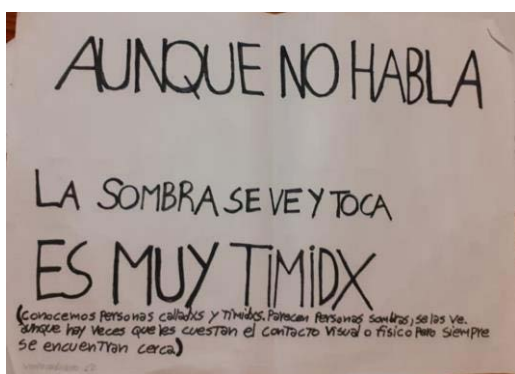 AUNQUE NO HABLA
LA SOMBRA SE VE Y TOCA
ES MUY TIMIDX
(conocemos Personas calladxs y Tímidxs. Parecen Personas sombras, se las ve.
aunque hay veces que les cuestan el contacto visual o físico Pero siempre
se encuentran cerca)